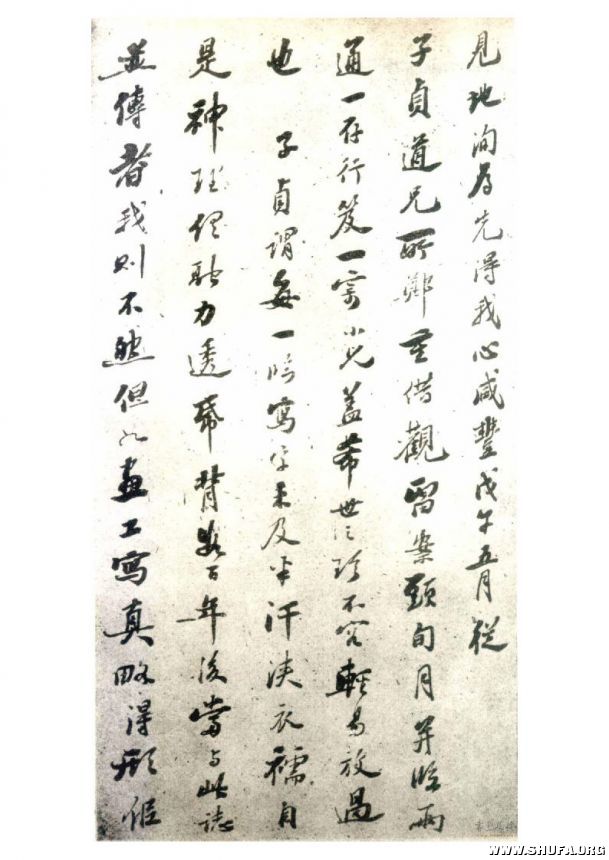 見地洵为先得我心咸豐戊午五月從
子貞道兄所借觀留案頭旬月并臨兩
通一存行笈一寄小兒蓋希世之珍不容輕易放過
也 子貞謂每一臨寫字未及半汗浹衣襦自
是神理力透帋背數百年後當与此誌
並傳者我則不然但如畫工寫真略得形似
WWW.SHUFA.ORG